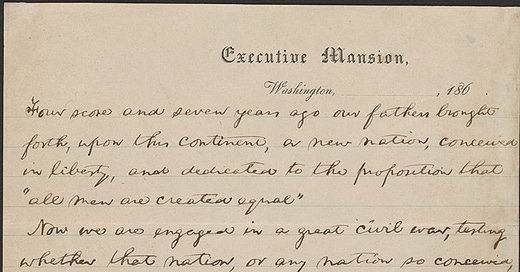 Executive Mansion,
Washington, , 186 .
Four score and seven years ago our fathers brought
forth, upon this continent, a new nation, conceived
in liberty, and dedicated to the proposition that
"all men are created equal"
Now we are engaged in a great civil war, testing
whether that nation, or any nation so conceived,